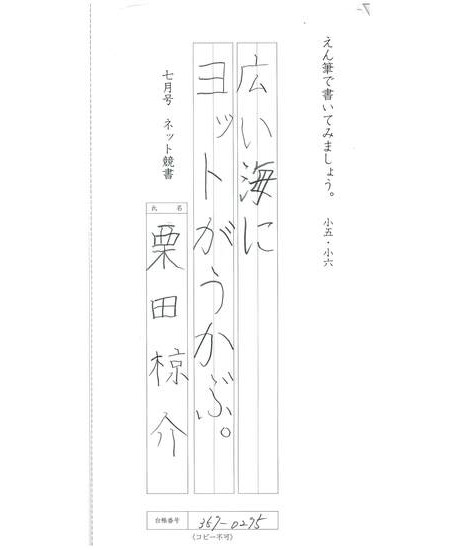 えん筆で書いてみましょう。 小五・小六
広い海に
ヨットがうかぶ。
七月号 ネット競書
氏名
栗田椋介
台帳番号 367-0275
《コピー不可》